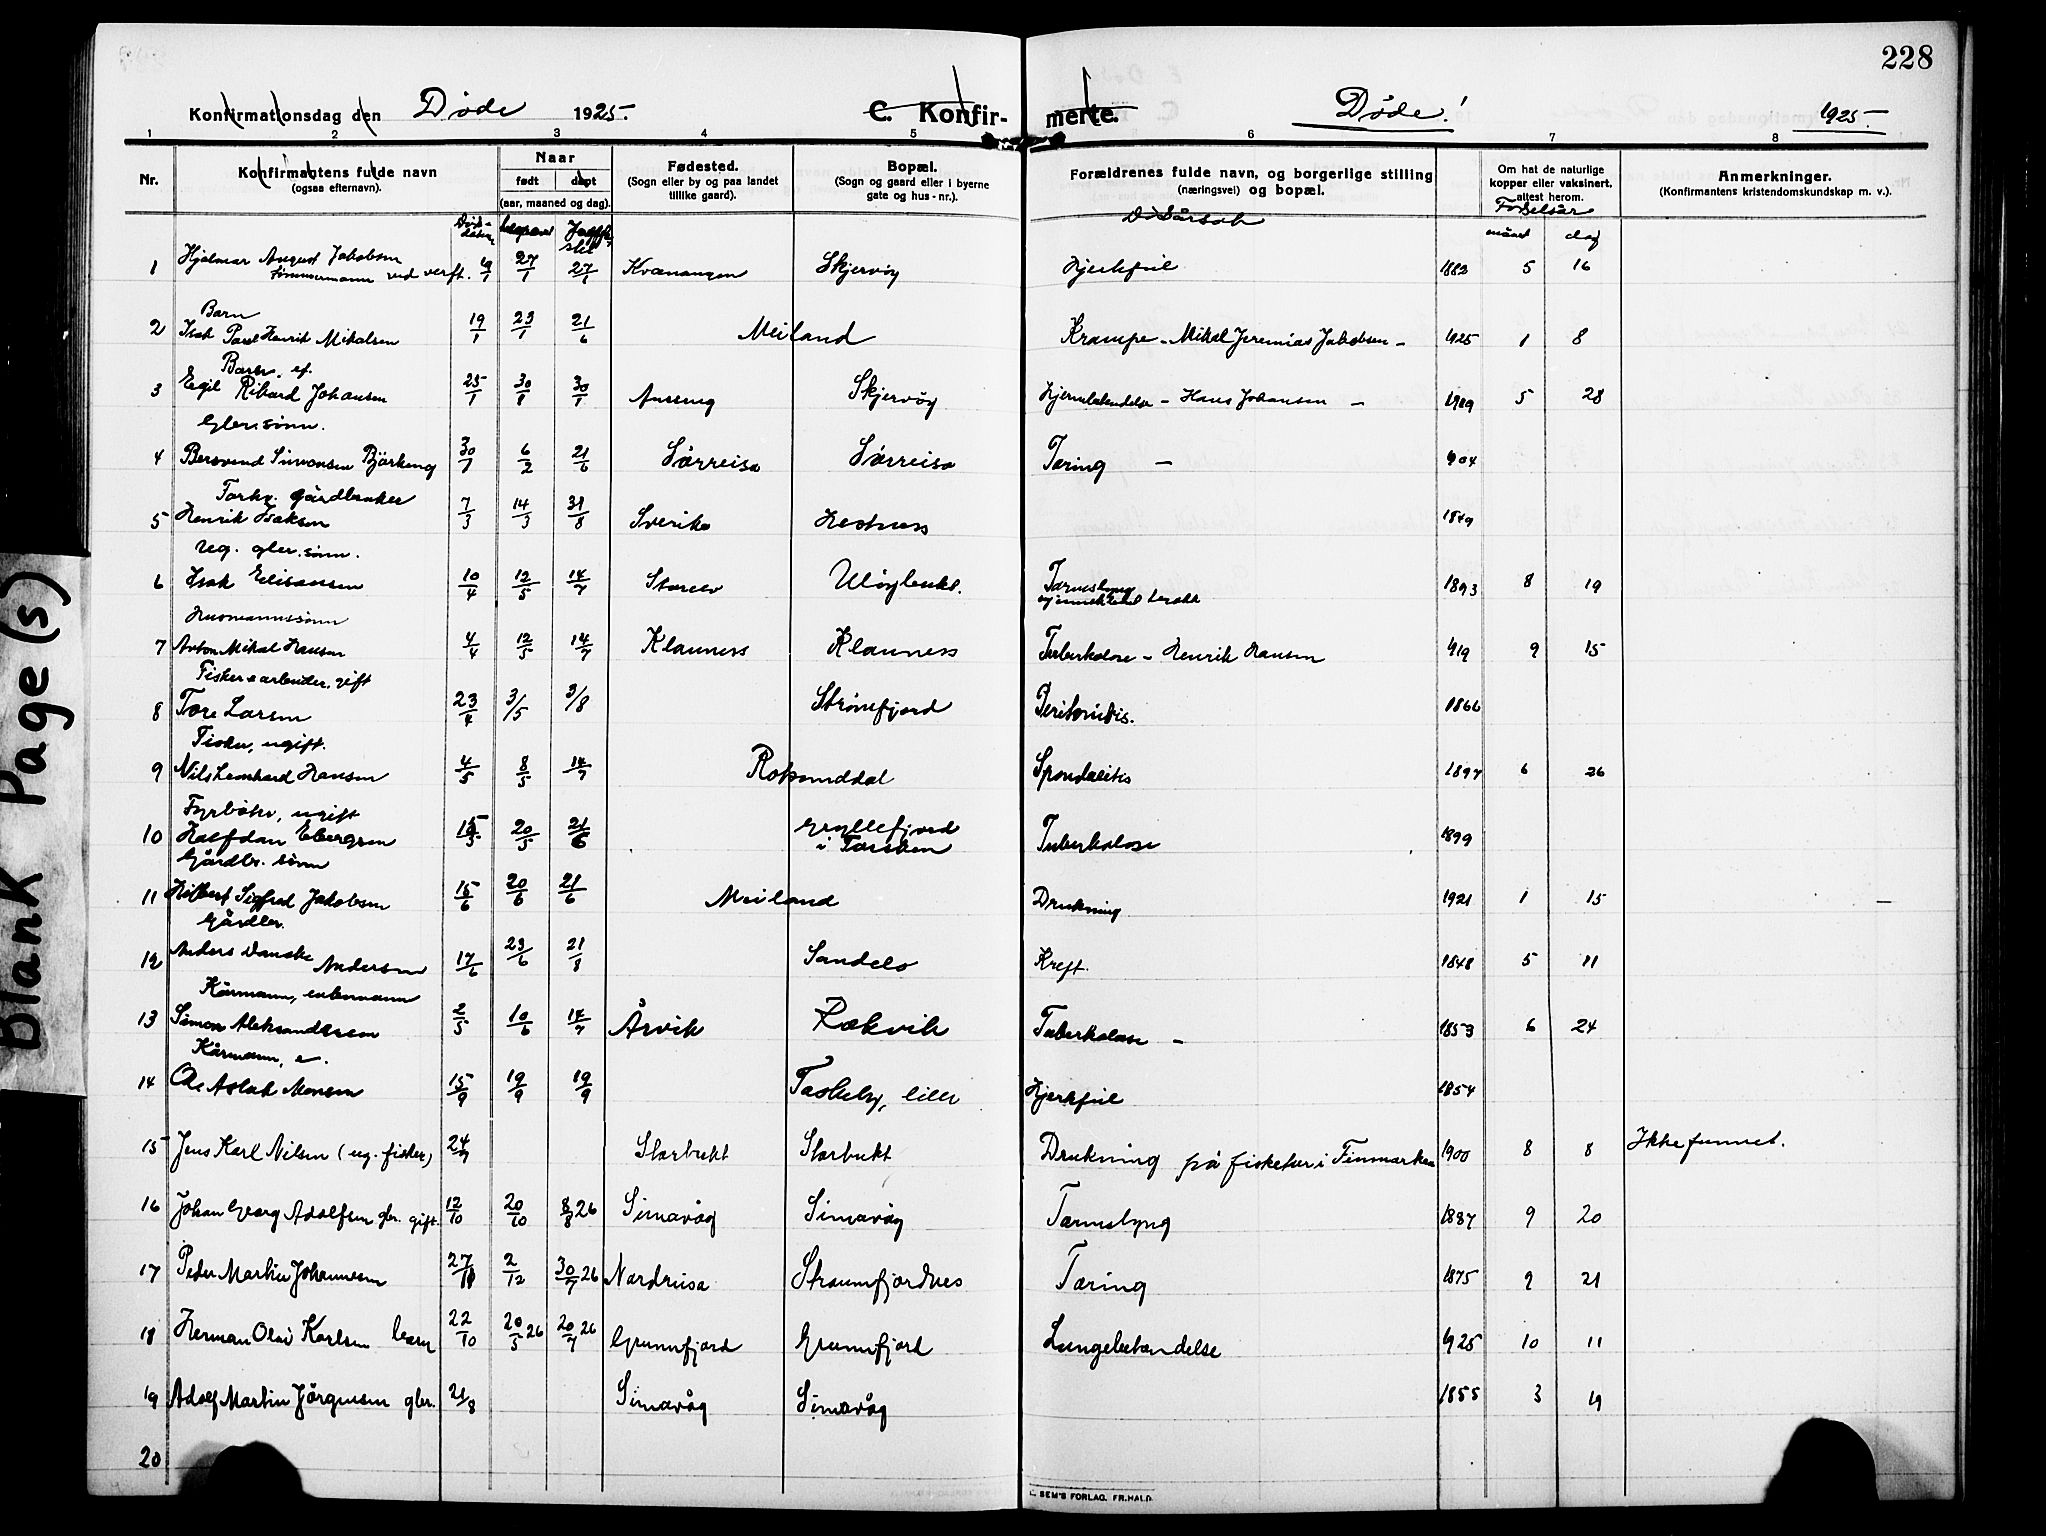 228
Konfirmationsdag den Døde 1925.
C. Konfirmerte. Døde! 1925.
1 2 3 4 5 6 7 8
Nr.
Konfirmantens fulde navn
(ogsaa efternavn).
Naar
født døpt
(aar, maaned og dag).
Fødested.
(Sogn eller by og paa landet
tillike gaard).
Bopæl.
(Sogn og gaard eller i byerne
gate og hus-nr.).
Forældrenes fulde navn, og borgerlige stilling
(næringsvei) og bopæl.
Om hat de naturlige
kopper eller vaksinert,
attest herom.
Anmerkninger.
(Konfirmantens kristendomskundskap m. v.).
Dødsårsak
Fødselsår
månet dag
1 Hjalmar August Jakobsen 19/1 27/1 27/1 Kvænangen Skjervøy Hjertefeil 1882 5 16
Tømmermann ved verft.
Barn
2 Isak Paul Henrik Mikalsen 19/1 23/1 21/6 Meiland Krampe - Mikal Jeremias Jakobsen - 1925 1 8
Barn, ef.
3 Egil Rikard Johansen 25/1 30/1 30/1 Skjervøy - Hans Johansen - 1919 5 28
Gbr. sønn.
4 Bersvend Simonsen Bjørkeng 30/1 6/2 21/6 Sørreisa Sørreisa Tæring - 904
Forhv. gårdbruker
5 Henrik Isaksen 7/3 14/3 31/8 Sverike 1849
Ug. gbr. sønn.
6 Isak Elisæussen 10/4 12/5 14/7 Storelv Uløybukt. Tarmslyng 1893 8 19
Husmannssønn
7 Anton Mikal Hansen 4/4 12/5 14/7 Klauness Klauness Tuberkulose - Henrik Hansen 919 9 15
Fisker o arbeider, gift
8 Tore Larsen 23/4 3/5 3/8 Strømfjord Peritonitis. 1866
Fisker, ugift.
9 Nils Leonhard Hansen 4/5 8/5 14/7 Rotsunddal Spondalitis 1897 6 26
Fyrbøter, ugift
10 Halfdan Ebergsen 20/5 21/6 Gryllefjord
i Torsken Tuberkulose 1899
Gårdbr. sønn
11 Hilbert Sigfred Jakobsen 15/6 20/6 21/6 Meiland Drukning 1921 1 15
Gårdbr.
12 Anders Danske Andersen 17/6 23/6 21/8 Kreft. 1848 5 11
Kårmann, enkemann
13 Simon Aleksandersen 2/5 10/6 14/7 Årvik Rakvik Tuberkulose - 1853 6 24
Kårmann, e.
14 Ole Aslak Monsen 15/9 19/9 19/9 Taskeby, lille Hjertefeil 1854
15 Jens Karl Nilsen (ug. fisker) 24/7 Storbukt Storbukt Drukning på fisketur i Finmarken 1900 8 8 Ikke funnet.
16 Johan Georg Adolfsen gbr. gift. 12/10 20/10 8/8 26 Simavåg Simavåg Tarmslyng 1887 9 20
17 Peder Martin Johannesen 27/11 2/12 30/7 26 Nordreisa Straumfjordnes Tæring 1875 9 21
18 Herman Olai Karlsen barn 22/10 20/5 26 20/7 26 Grunnfjord Grunnfjord Lungebetendelse 1925 10 11
19 Adolf Martin Jörgensen gbr. 21/8 Simavåg Simavåg 1855 3 19
20
SEM'S FORLAG. FR.HALD
Blank Page(s)